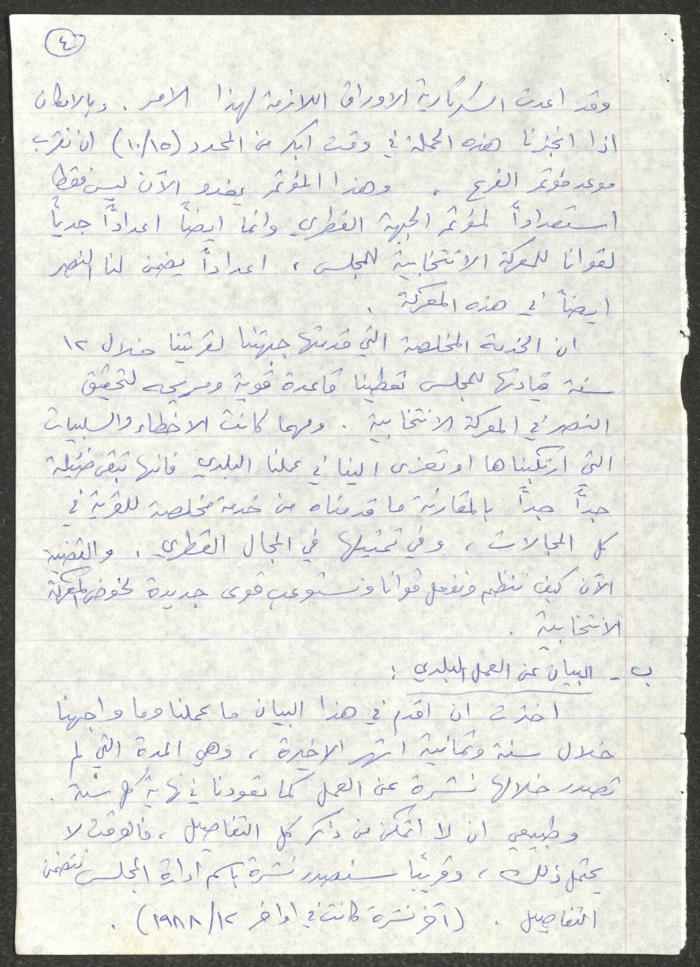 ٤
وقد اعدت السكرتارية الاوراق اللازمة لهذا الامر. وبالامكان
اذا انجزنا هذه الحملة في وقت ابكر من المحدد (١٠/١٥) ان نقرب
موعد مؤتمر الفرع. وهذا المؤتمر يغدو الآن ليس فقط
استعداداً لمؤتمر الجبهة القطري وانما ايضاً اعداداً جدياً
لقوانا للمعركة الانتخابية للمجلس، اعداداً يضمن لنا النصر
ايضاً في هذه المعركة.
ان الخدمة المخلصة التي قدمتها جبهتنا لقريتنا خلال ١٢
سنة قيادتها للمجلس تعطينا قاعدة قوية ومريحه لتحقيق
النصر في المعركة الانتخابية. ومهما كانت الاخطاء والسلبيات
التي ارتكبناها او تعزى الينا في عملنا البلدي فانها تبقى ضئيلة
جداً جداً بالمقارنة ما قدمناه من خدمة مخلصة للقرية في
كل المجالات، وفي تمثيلها في المجال القطري. والقضية
الآن كيف ننظم ونفعل قوانا ونستوعب قوى جديدة لخوض المعركة
الانتخابية.
ب- البيان عن العمل البلدي:
اخترت ان اقدم في هذا البيان ما عملنا وما واجهنا
خلال سنة وثمانية اشهر الاخيرة، وهي المدة التي لم
تصدر خلالها نشرة عن العمل كما تعودنا في نهاية كل سنة.
وطبيعي ان لا اتمكن من ذكر كل التفاصيل، فالوقت لا
يحتمل ذلك، وقريبًا سنصدر نشرة باسم ادارة المجلس تتضمن
التفاصيل. (آخر نشرة كانت في اواخر ١٩٨٨/١٢).